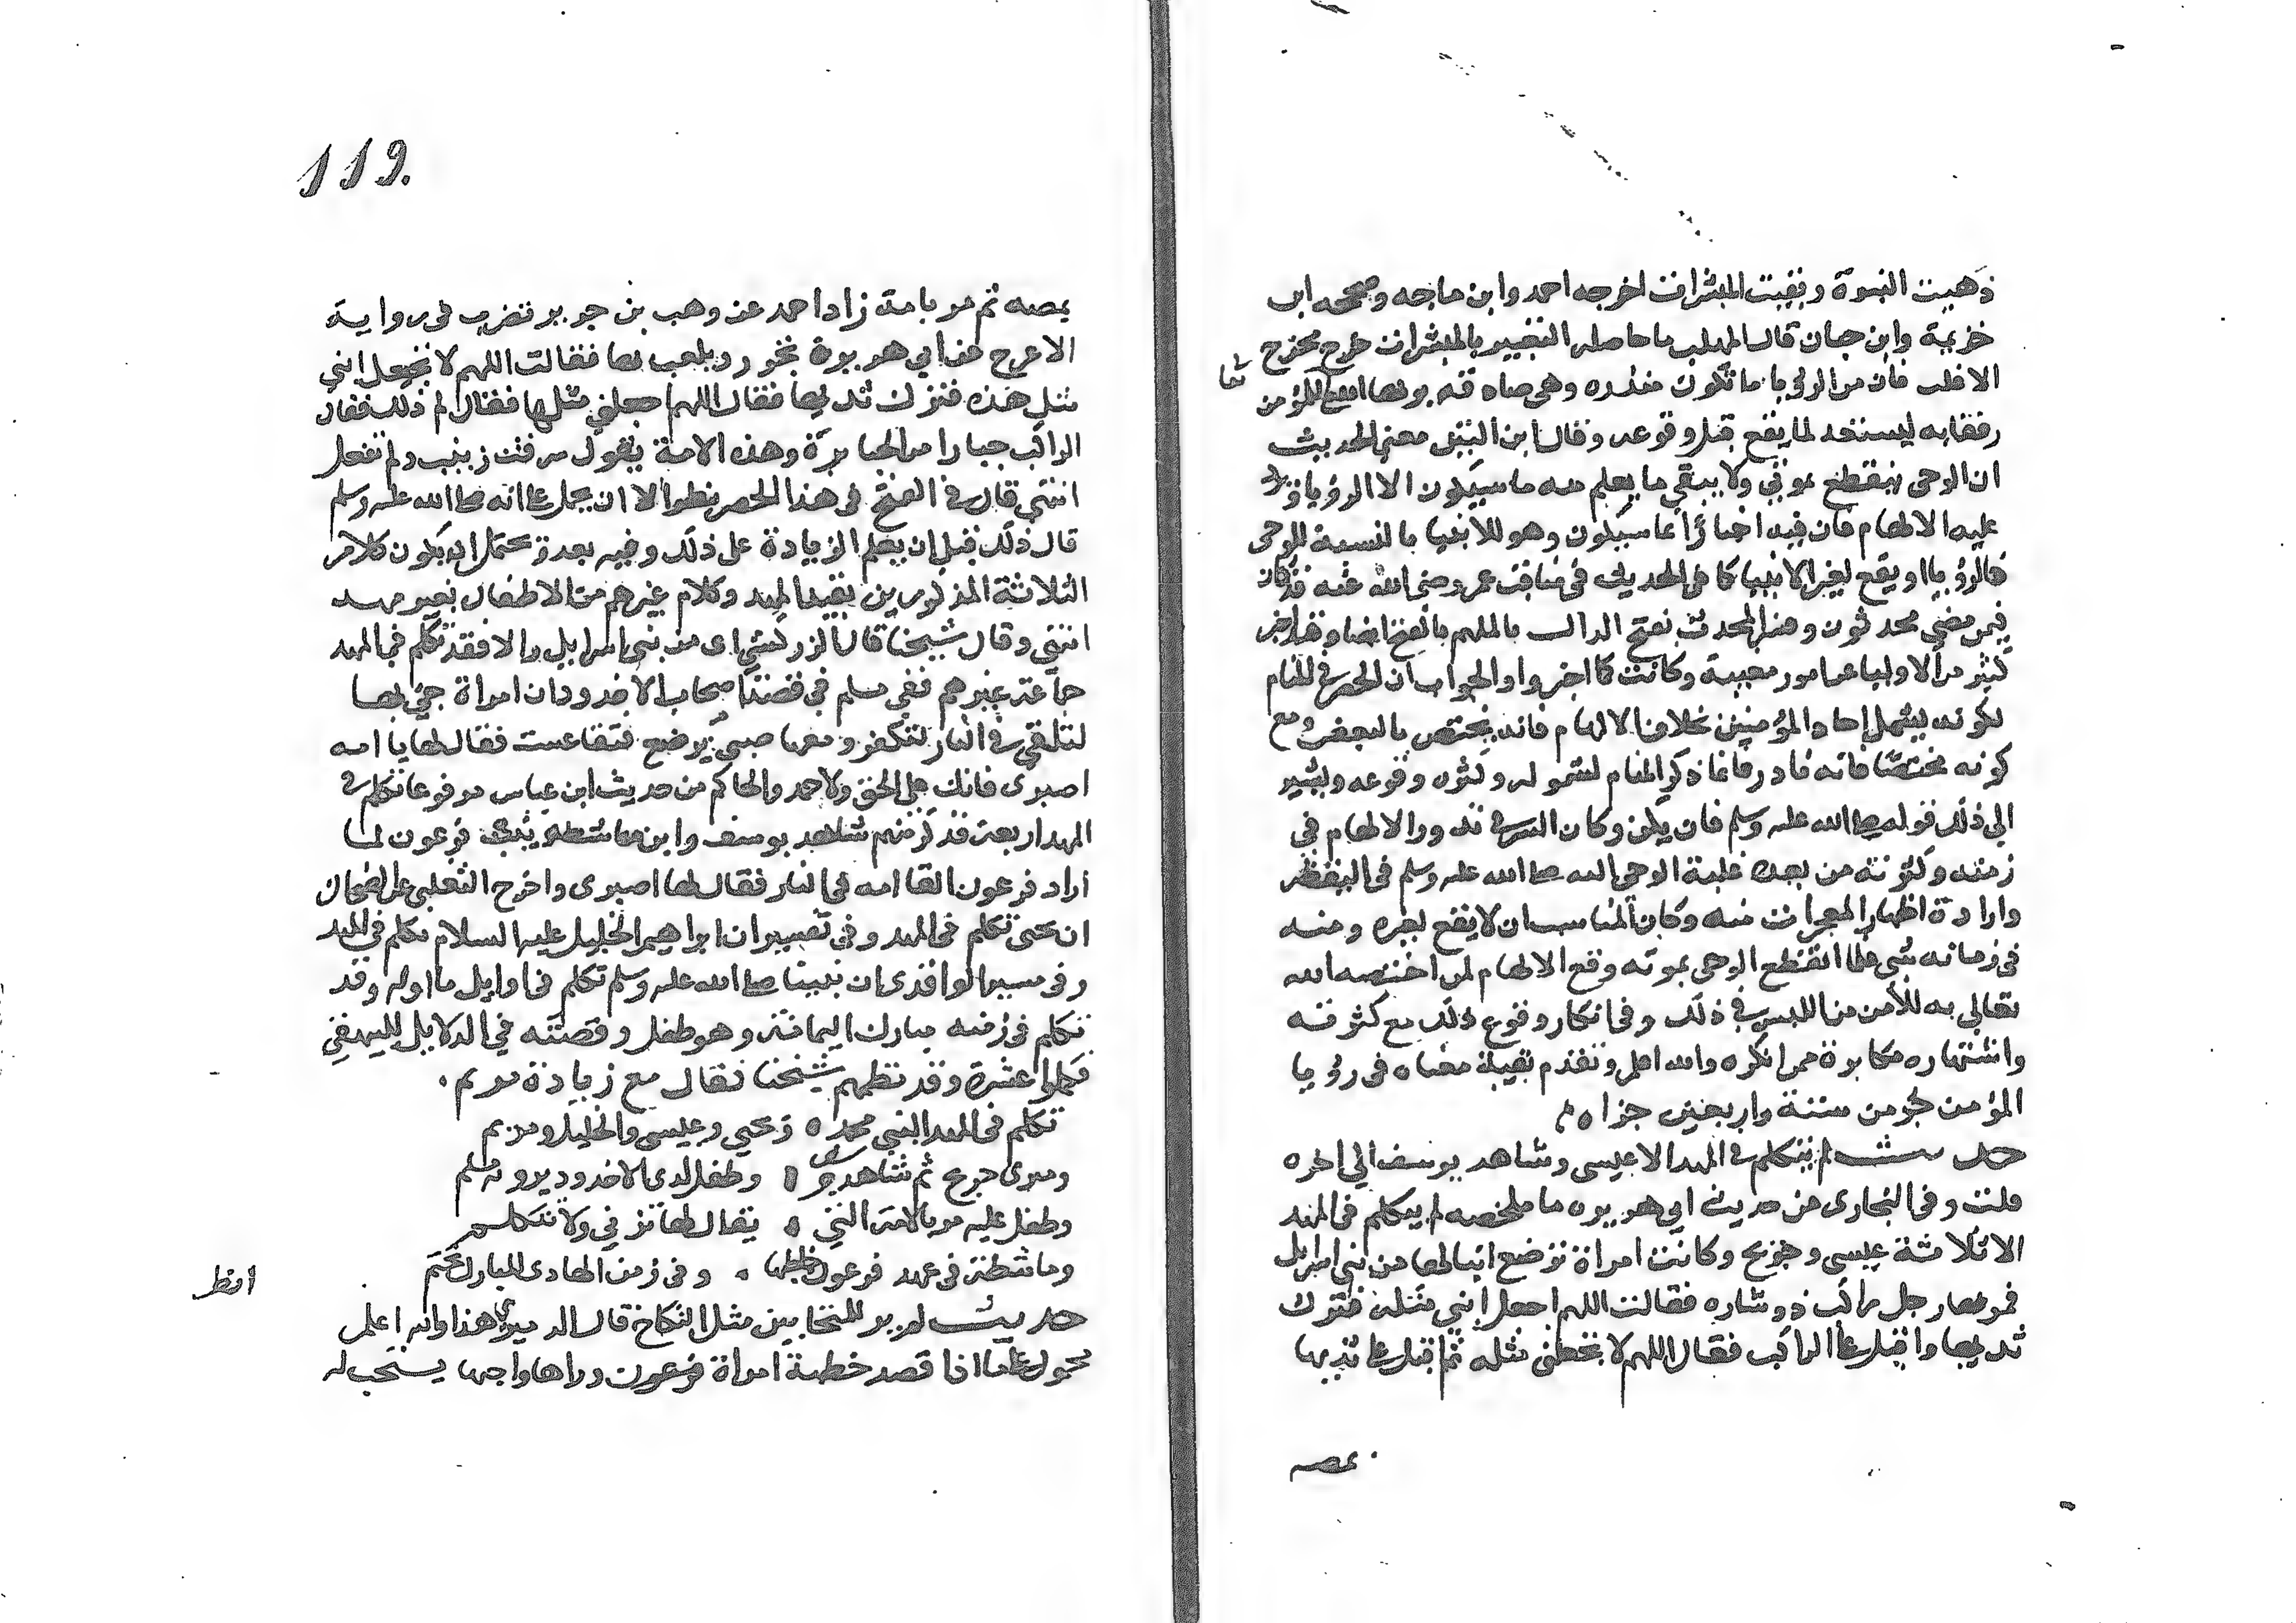 ذهبت النبوة وبقيت المبشرات اخرجه احمد وابن ماجه وصححه ابن
خزيمة وابن حبان قال المهلب ما حاصله التعبير بالمبشرات خرج مخرج
الاغلب فان من الرويا ما تكون منذره وهي صادقه يريها الله للمؤمن
رفقا به ليستعد لما يقع قبل وقوعه وقال ابن التين معنى الحديث
ان الوحي ينقطع بموتي ولا يبقى ما يعلم منه ما سيكون الا الرؤيا ويرد
عليه الالهام فان فيه اخبارا بما سيكون وهو للانبيا بالنسبة للوحي
كالرؤيا ويقع لغير الانبيا كما في الحديث في مناقب عمر رضي الله عنه قد كان
فيمن مضى محدثون وفسر المحدث بفتح الدال بالملهم بالفتح ايضا وقد اخبر
كثير من الاوليا عن امور مغيبة وكانت كما اخبروا والجواب ان الحصر في المنام
لكونه يشمل احاد المؤمنين بخلاف الالهام فانه يختص بالبعض ومع
كونه مختصا فانه نادر فانما ذكر المنام لشموله وكثرة وقوعه ويشير
الى ذلك قوله صلى الله عليه وسلم فان يكن وكان السر في ندور الالهام في
زمنه وكثرته من بعده غلبة الوحي اليه صلى الله عليه وسلم في اليقظة
وارادة اظهار المعجزات منه وكان المناسب ان لا يقع لغيره منه
في زمانه شي فلما انقطع الوحي بموته وقع الالهام لمن اختصه الله
تعالى به للأمن من اللبس في ذلك وفي انكار وقوع ذلك مع كثرته
واشتهاره مكابرة ممن انكره والله اعلم وتقدم بقية معناه في رؤيا
المؤمن جزء من ستة واربعين جزا
حديث لم يتكلم في المهد الا عيسى وشاهد يوسف الى اخره
قلت وفي البخاري من حديث ابي هريره ما ملخصه لم يتكلم في المهد
الا ثلاثة عيسى وجريج وكانت امراة ترضع ابنا لها من بني اسرايل
فمر بها رجل راكب ذو شاره فقالت اللهم اجعل ابني مثله فترك
ثديها واقبل على الراكب فقال اللهم لا تجعلني مثله ثم اقبل على ثديها
يمصه
119.
يمصه ثم مر بامة زاد احمد عن وهب بن جرير تضرب في رواية
الاعرج عن ابي هريرة تجرر ويلعب بها فقالت اللهم لا تجعل ابني
مثل هذه فترك ثديها فقال اللهم اجعلني مثلها فقال لم ذلك فقال
الراكب جبارا من الجبابرة وهذه الامة يقول سرقت زنيت ولم تفعل
انتهى قال في الفتح في هذا الحصر نظر الا ان يحمل على انه صلى الله عليه وسلم
قال ذلك قبل ان يعلم الزيادة على ذلك وفيه بعد ويحتمل ان يكون كلام
الثلاثة المذكورين بقيد المهد وكلام غيرهم من الاطفال بغير مهد
انتهى وقال شيخنا قال الزركشي اي من بني اسرايل والا فقد تكلم في المهد
جماعة غيرهم ففي مسلم في قصة اصحاب الاخدود ان امراة جيء بها
لتلقى في النار لتكفر ومعها صبي يرضع فتقاعست فقال لها يا امه
اصبري فانك على الحق ولاحمد والحاكم من حديث ابن عباس مرفوعا تكلم في
المهد اربعة فذكر منهم شاهد يوسف وابن ماشطة بنت فرعون لما
اراد فرعون القا امه في النار فقال لها اصبري واخرج الثعلبي عن الضحاك
ان يحيى تكلم في المهد وفي تفسير ان ابراهيم الخليل عليه السلام تكلم في المهد
وفي سير الواقدي ان نبينا صلى الله عليه وسلم تكلم في اوايل ما ولد وقد
تكلم في زمنه مبارك اليمامة وهو طفل وقصته في الدلايل للبيهقي
فكملوا عشرة وقد نظمهم شيخنا فقال مع زيادة مريم
تكلم في المهد النبي محمد ه ويحيى وعيسى والخليل ومريم
ومبرى جريج ثم شاهد يوسف ه وطفل لدى الاخدود يرويه مسلم
وطفل عليه مر بالامة التي ه يقال لها تزني ولا تتكلم
وماشطة في عهد فرعون طفلها ه وفي زمن الهادي المبارك يختم
حديث لم ير للمتحابين مثل النكاح قال الدميري هذا والله اعلم
محمول على ما اذا قصد خطبة امراة وراها واحبها يستحب له
انظر